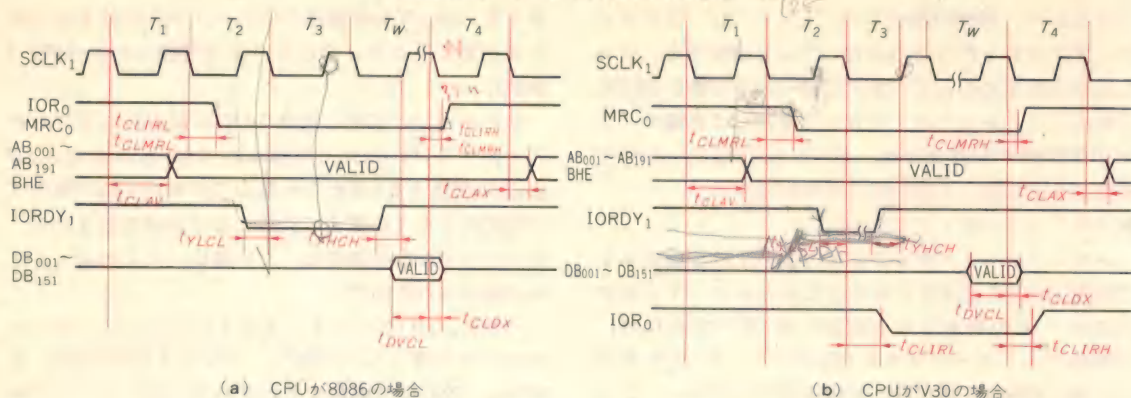 T1 T2 T3 TW T4
SCLK1
IOR0
MRC0
tCLIRL
tCLMRL
tCLIRH
tCLMRH
AB001~
AB191
BHE
VALID
tCLAV
tCLAX
IORDY1
tYLCL
tYHCH
DB001~
DB151
VALID
tCLDX
tDVCL
(a) CPUが8086の場合
T1 T2 T3 TW T4
SCLK1
MRC0
tCLMRL
tCLMRH
AB001~AB191
BHE
VALID
tCLAV
tCLAX
IORDY1
tYHCH
DB001~DB151
VALID
tCLDX
tDVCL
IOR0
tCLIRL
tCLIRH
(b) CPUがV30の場合